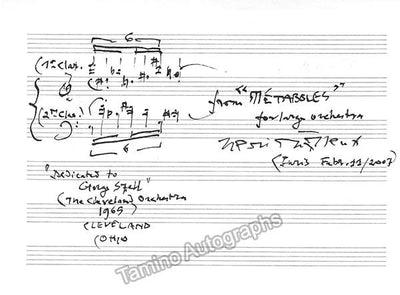 6
(1ª Clar.
(2ª Clar.
6
from "METABOLES"
for large orchestra
(Paris Febr. 11/2007)
"Dedicated to
George Szell"
(The Cleveland Orchestra
1965
CLEVELAND
OHIO
Tamino Autographs